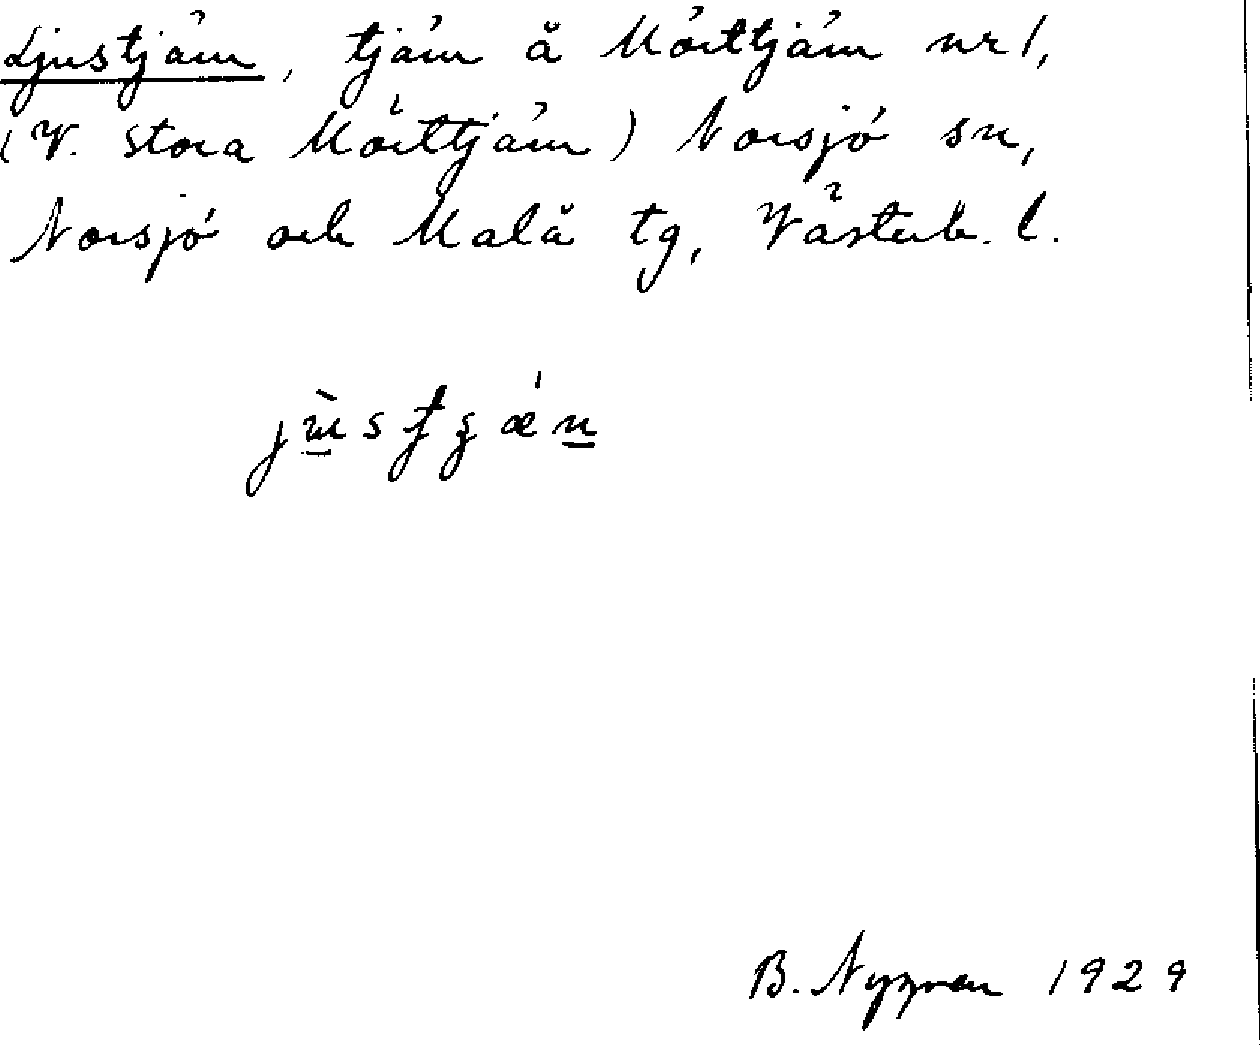 Ljustjärn, tjärn å Mörttjärn nr 1,
(V. Stora Mörttjärn) Norsjö sn,
Norsjö och Malå tg, Västerb. l.
B. Nygren 1929